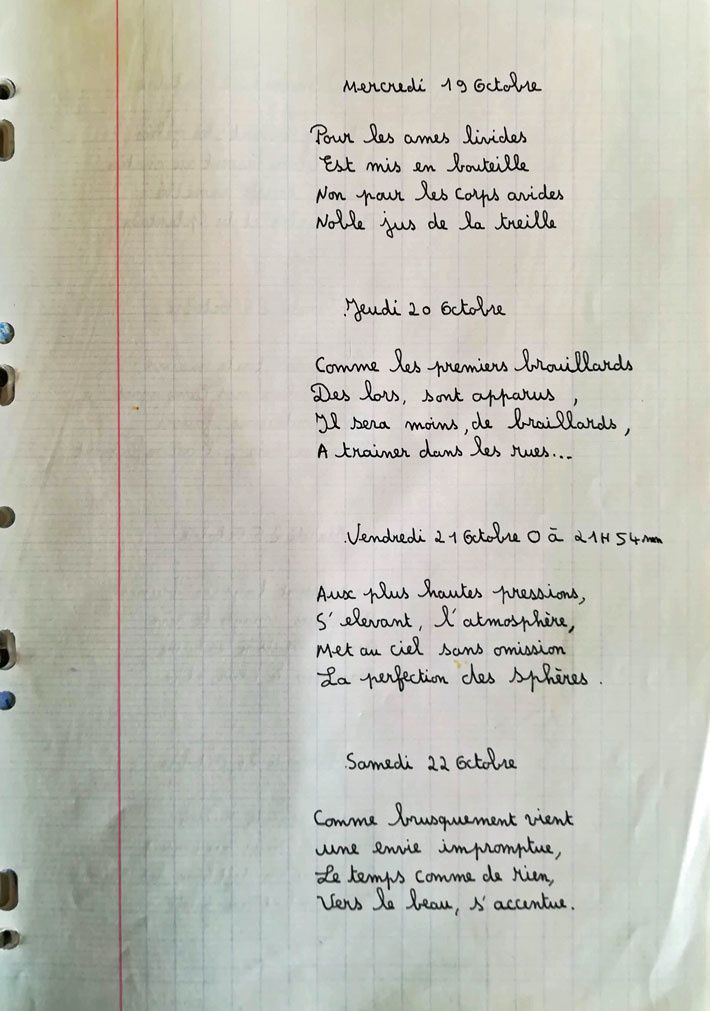 Mercredi 19 Octobre
Pour les ames livides
Est mis en bouteille
Non pour les corps avides
Noble jus de la treille
Jeudi 20 Octobre
Comme les premiers brouillards
Des lors, sont apparus,
Il sera moins, de braillards,
A trainer dans les rues...
Vendredi 21 Octobre O à 21H54mn
Aux plus hautes pressions,
S'elevant, l'atmosphère,
Met au ciel sans omission
La perfection des sphères.
Samedi 22 Octobre
Comme brusquement vient
une envie impromptue,
Le temps comme de rien,
Vers le beau, s'accentue.